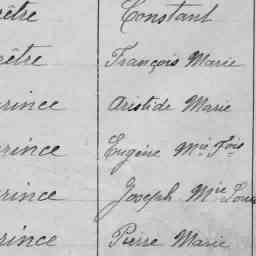 être Constant
être François Marie
rince Aristide Marie
rince Eugène Mie Fois
rince Joseph Mie Loui
rince Pierre Marie